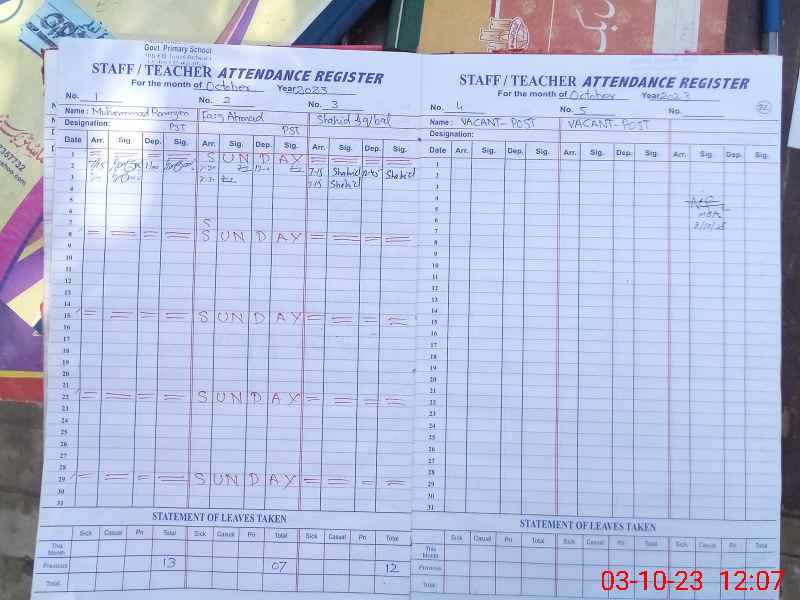 Govt. Primary School
STAFF / TEACHER ATTENDANCE REGISTER
For the month of October Year 2023
No. 1 No. 2 No. 3
Name: Muhammad Ramzan Faiz Ahmad Shahid Iqbal
Designation: PST PST
Date Arr. Sig. Dep. Sig. Arr. Sig. Dep. Sig. Arr. Sig. Dep. Sig.
1 = = = = S U N D A Y = = = =
2 7-15 Shahid Shahid
3 7-15 Shahid
4
5
6
7 S
8 = = = = S U N D A Y = = = =
9
10
11
12
13
14
15 = = = = S U N D A Y = = = =
16
17
18
19
20
21
22 = = = = S U N D A Y = = = =
23
24
25
26
27
28
29 = = = = S U N D A Y = = = =
30
31
STATEMENT OF LEAVES TAKEN
Sick Casual Pri Total Sick Casual Pri Total Sick Casual Pri Total
This Month
Previous 13 07 12
Total:
STAFF / TEACHER ATTENDANCE REGISTER
For the month of October Year 2023
No. 4 No. 5 No.
Name: VACANT-POST VACANT-POST
Designation:
Date Arr. Sig. Dep. Sig. Arr. Sig. Dep. Sig. Arr. Sig. Dep. Sig.
1
2
3
4
5
6
7
8
9
10
11
12
13
14
15
16
17
18
19
20
21
22
23
24
25
26
27
28
29
30
31
STATEMENT OF LEAVES TAKEN
Sick Casual Pri Total Sick Casual Pri Total Sick Casual Pri Total
This Month
Previous
Total:
03-10-23 12:07